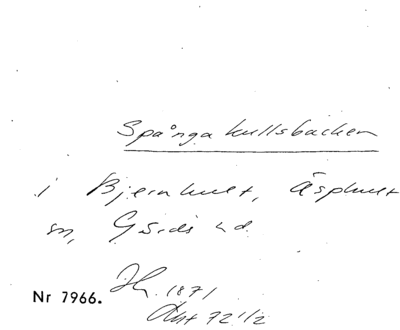 Spångakullsbacken
i Bjernhult, Äsphult
sn, Gärds hd.
Nr 7966.
1871
72 1/2